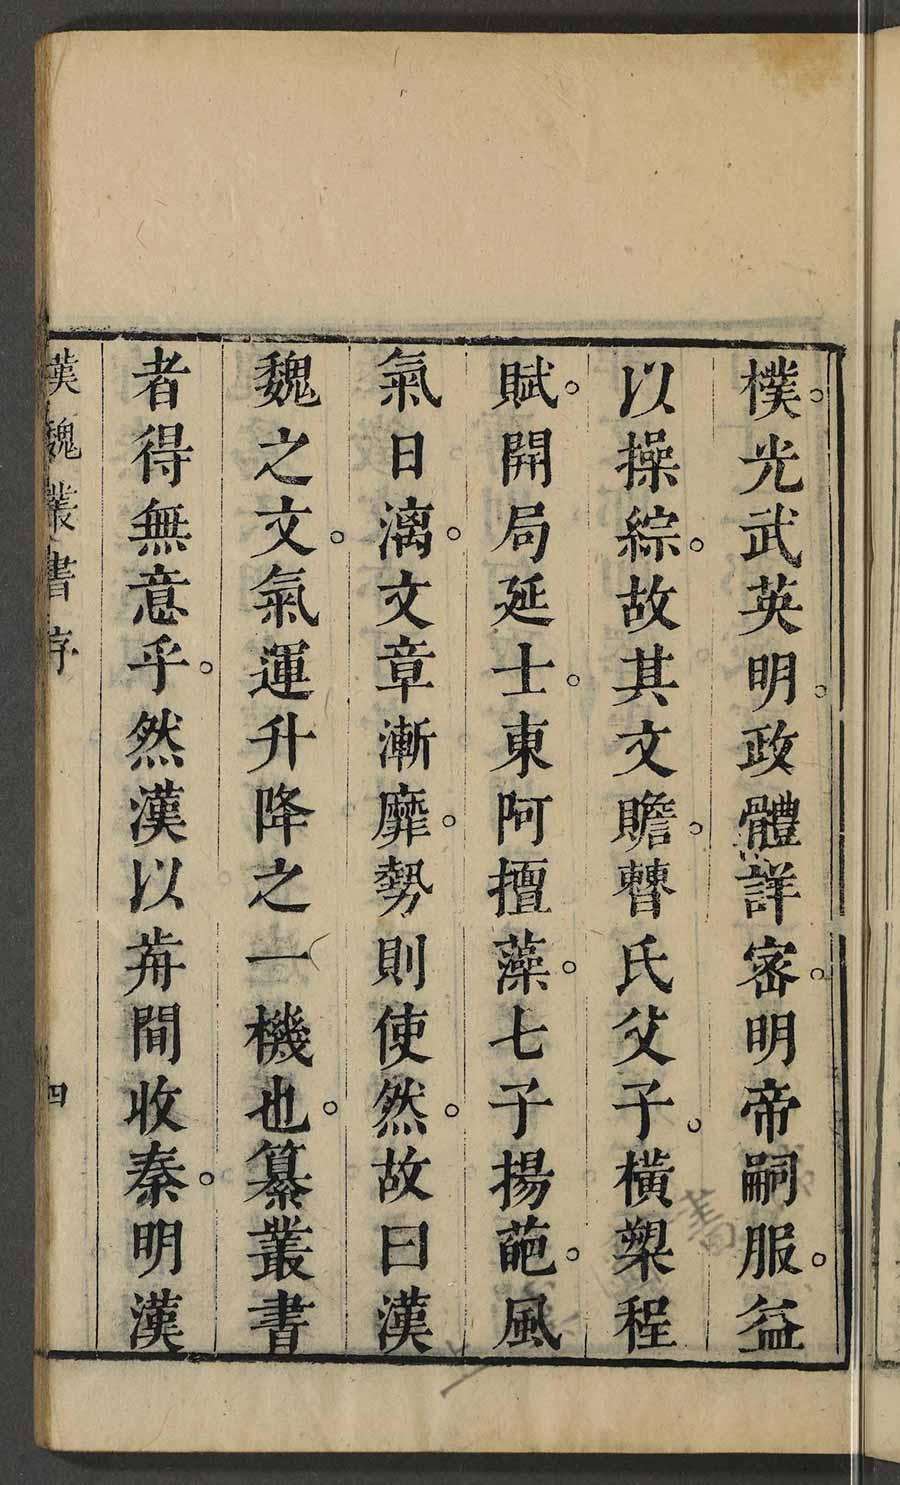 樸。光武英明。政體詳密。明帝嗣服。益
以操綜。故其文贍。瞽氏父子。橫槊程
賦。開局延士。東阿擅藻。七子揚葩。風
氣日漓。文章漸靡。勢則使然。故曰漢
魏之文。氣運升降之一機也。纂叢書
者得無意乎。然漢以前間收秦。明漢
漢魏叢書序 四